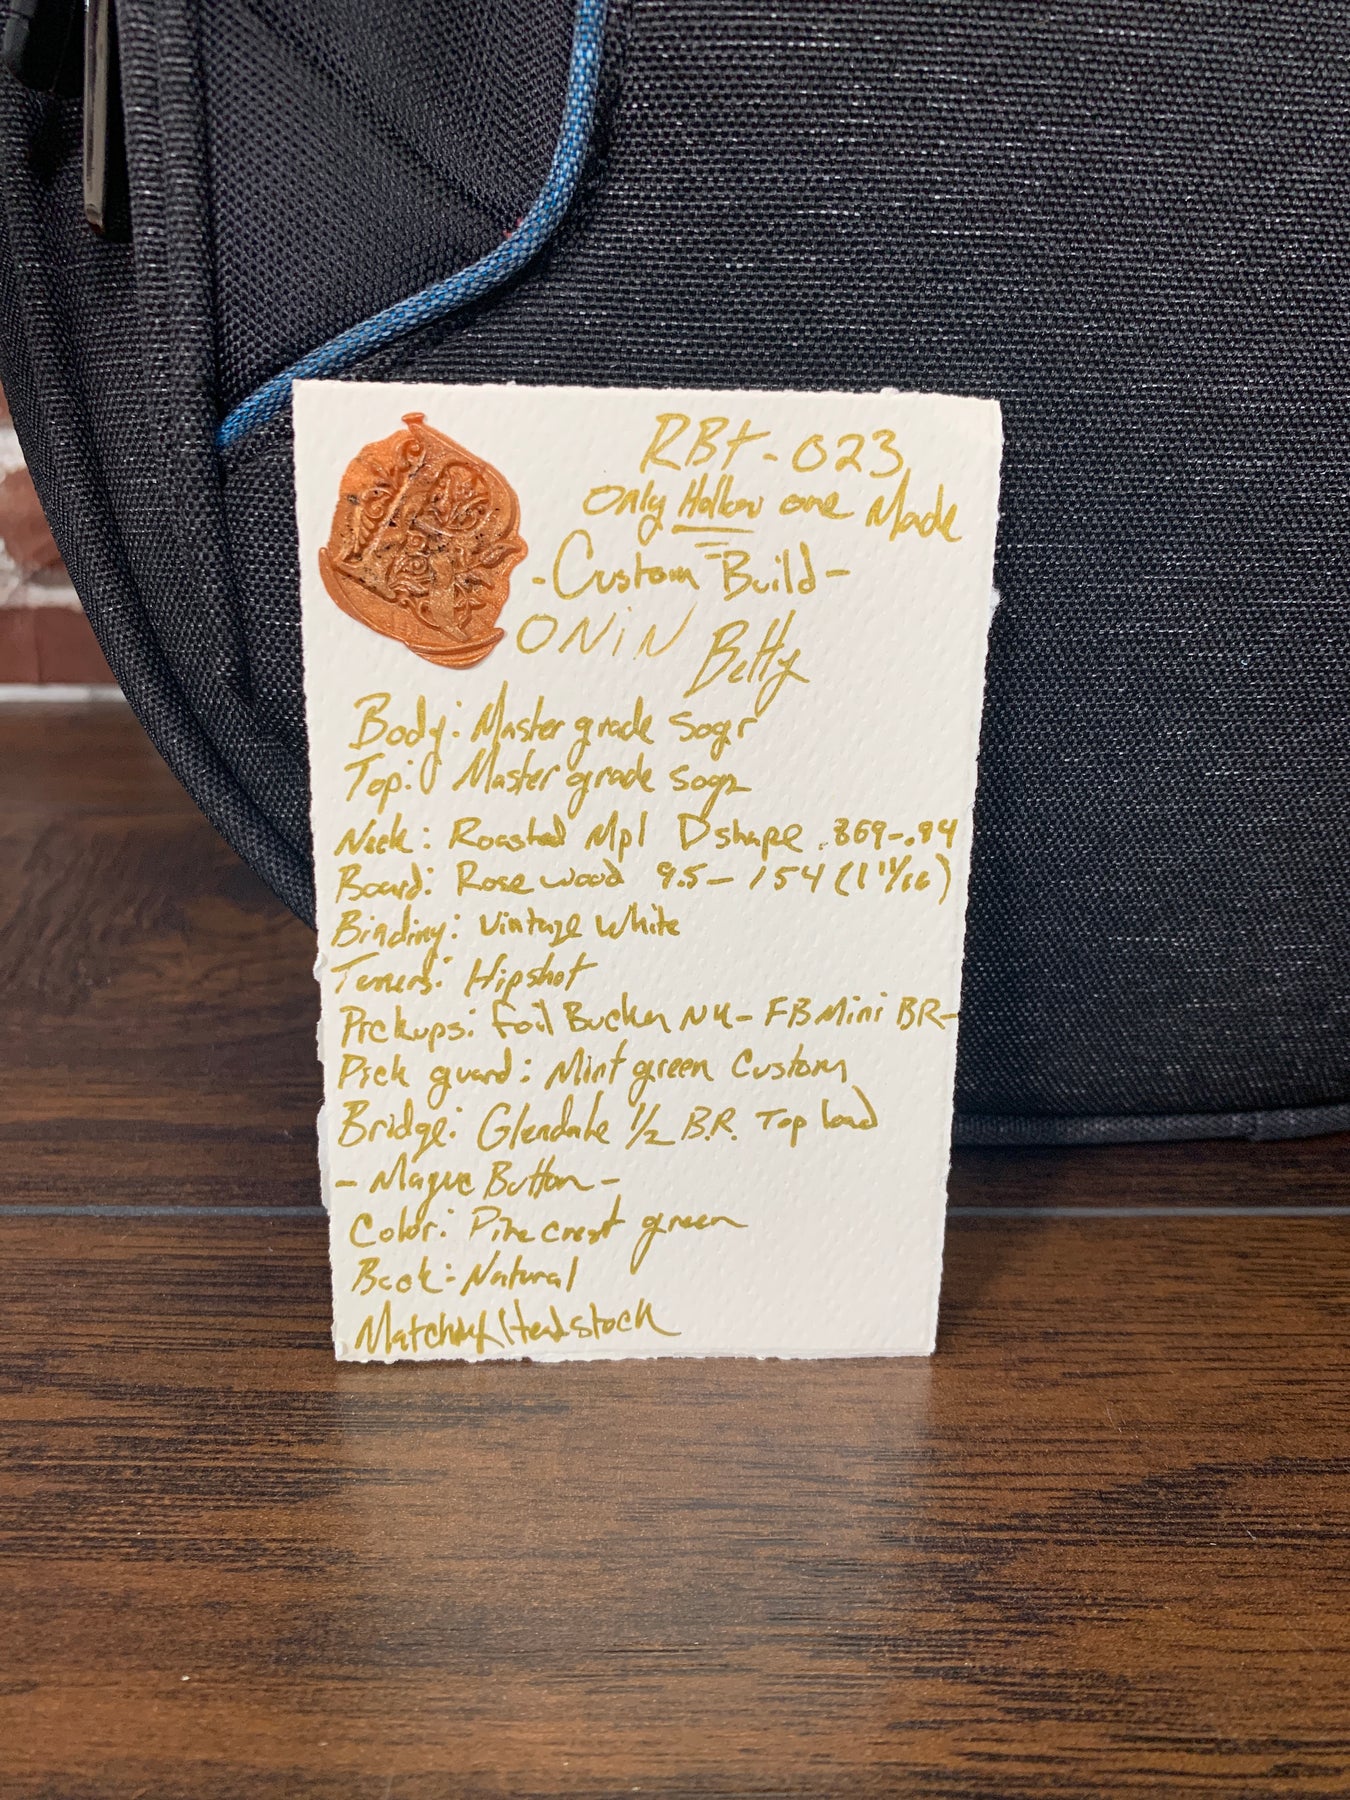 RBt-023
Only Hollow one Made
-Custom Build-
ONiN Betty
Body: Master grade Sogr
Top: Master grade Sogr
Neck: Roasted Mpl D shape .869-.94
Board: Rose wood 9.5- 154 (1 11/16)
Binding: Vintage White
Tuners: Hipshot
Pickups: Foil Bucker NK- FB Mini BR-
Pick guard: Mint green Custom
Bridge: Glendale 1/2 B.R. Top load
- Button -
Color: Pine crest green
Back: Natural
Matching Headstock